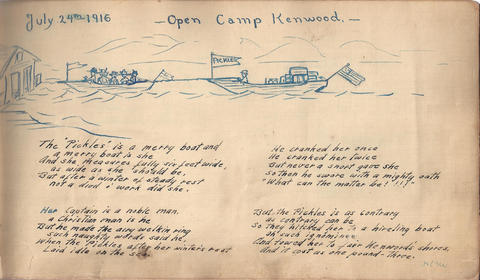 July 24th 1916
—Open Camp Kenwood.—
PICKLES
The 'Pickles' is a merry boat and
a merry boat is she
And she measures fully six feet wide
as wide as she should be.
But after a winter of steady rest
not a diod i work did she.
Her Captain is a noble man.
a Christian man is he
But he made the airy welkin ring
such naughty words said he,
When the Pickles after her winters rest
Laid idle on the sea
He cranked her once
He cranked her twice
But never a snort gave she
So then he swore with a mighty oath
"What can the matter be! !!!"
But the Pickles is as contrary
as contrary can be
So they hitched her to a hireling boat
oh such ignominee
And towed her to fair Kenwoods shores.
And it cost us one pound-three.